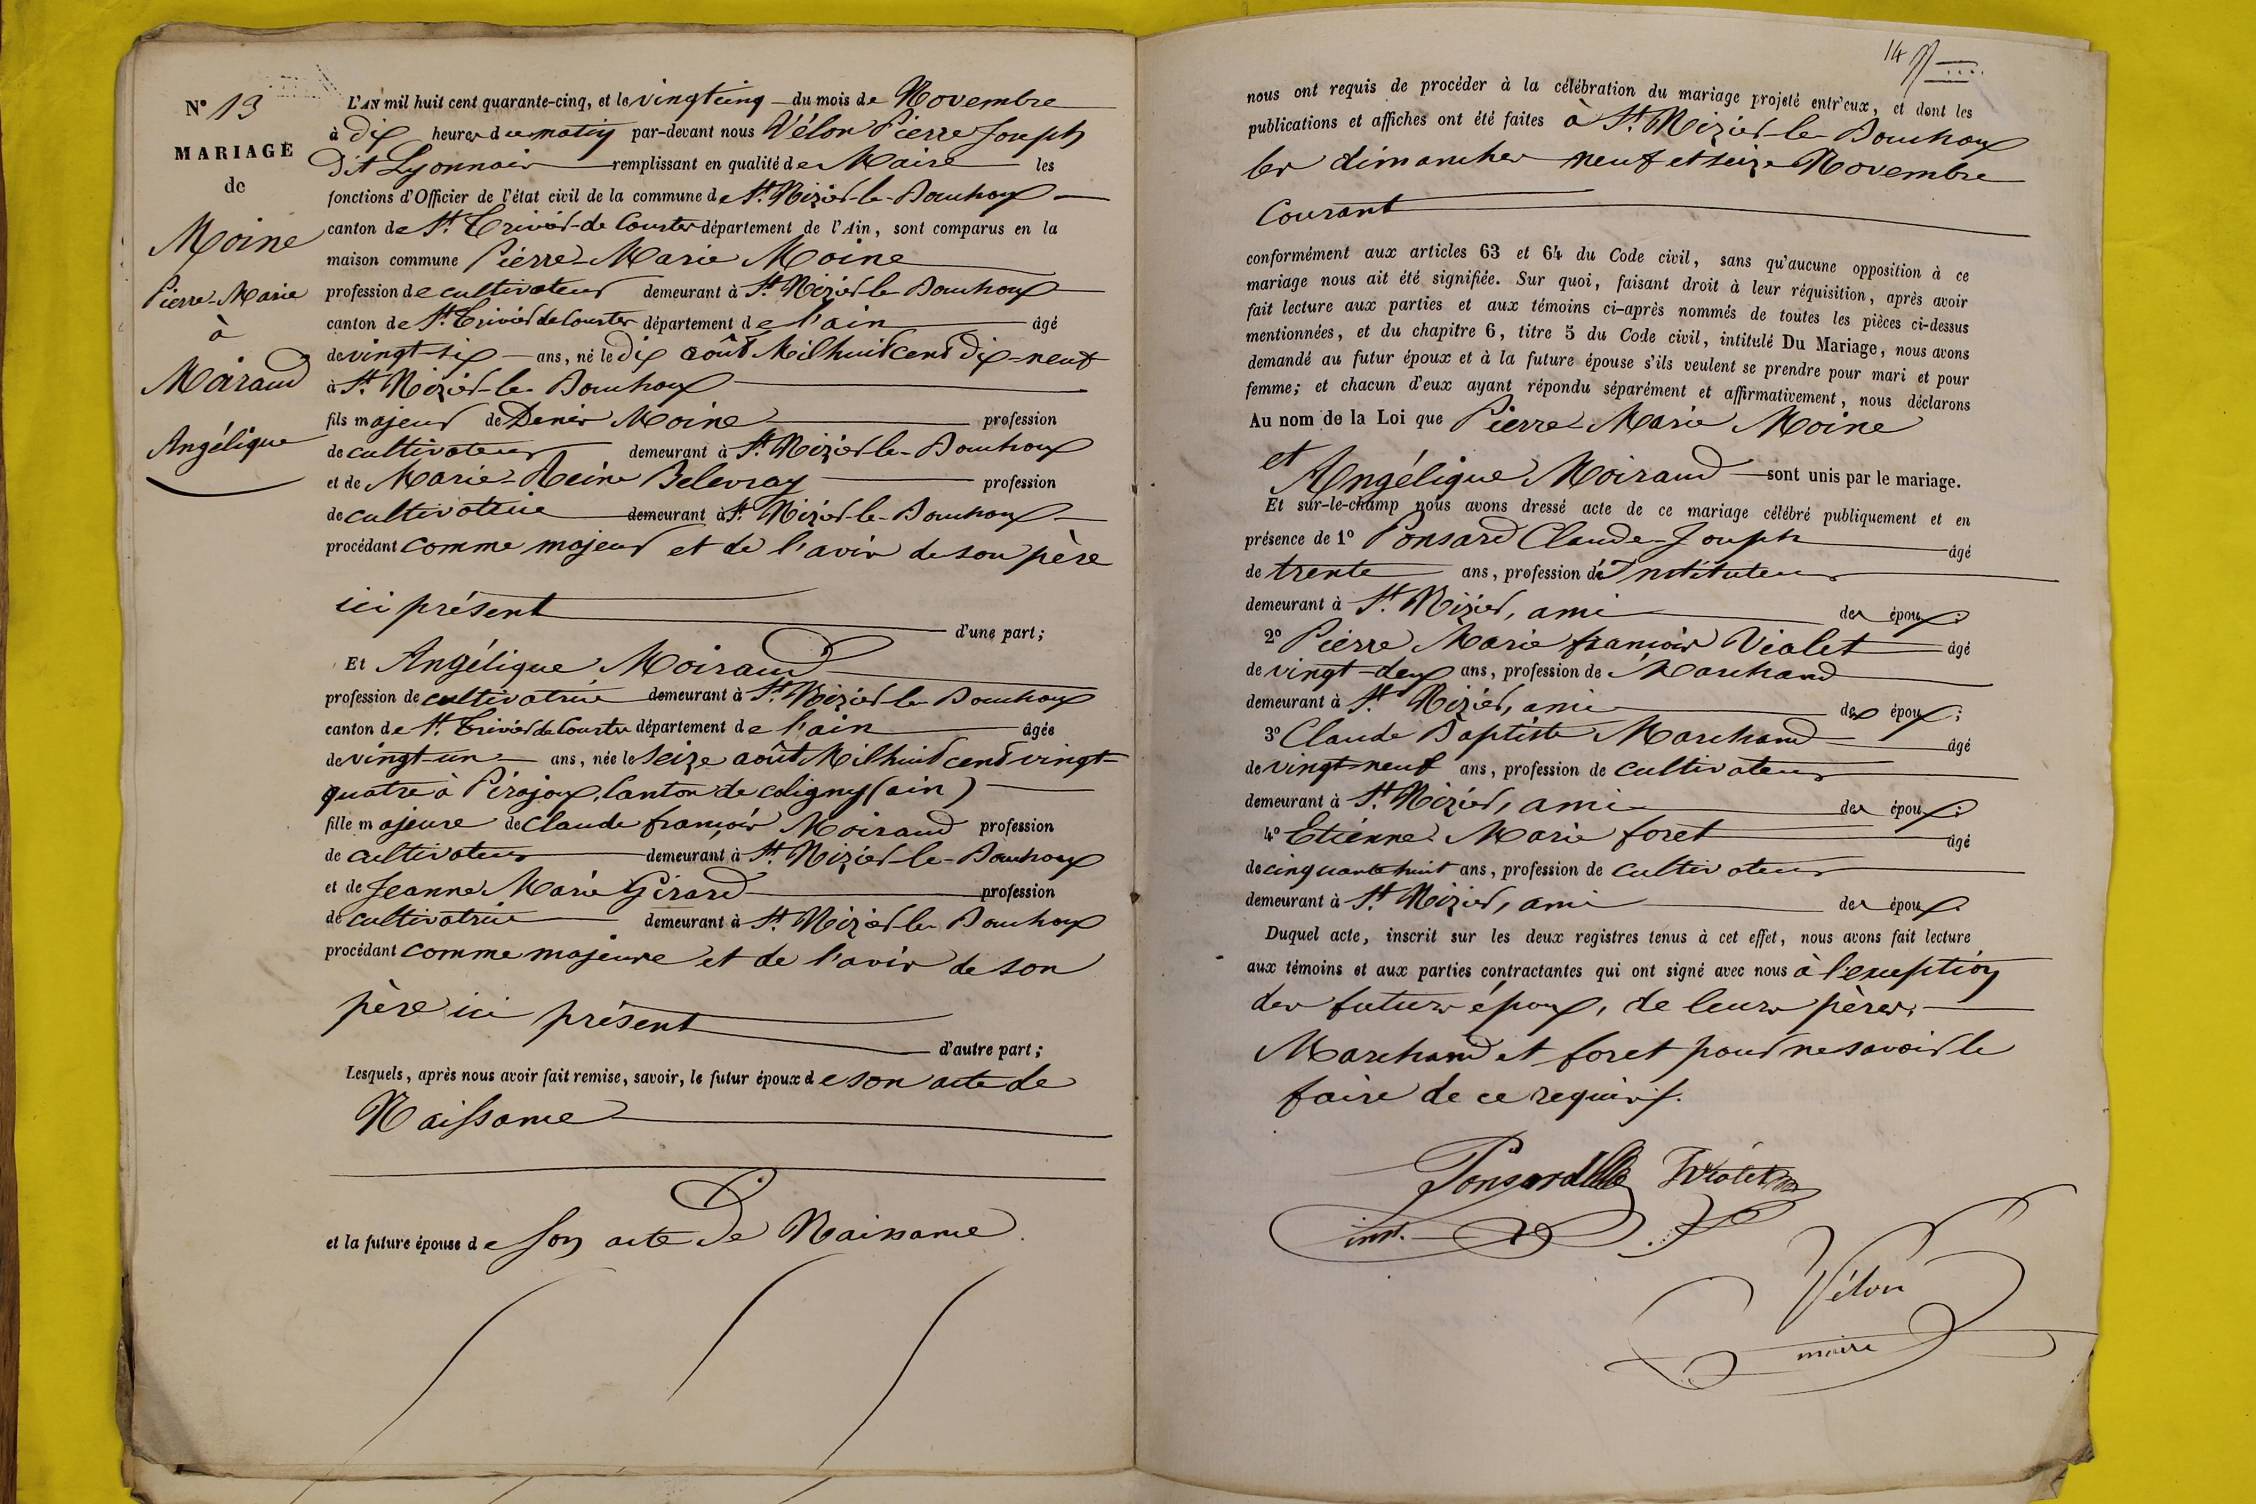 N° 13
MARIAGE
de
Moine
Pierre-Marie
à
Moiraud
Angélique
L'AN mil huit cent quarante-cinq, et le vingtcinq du mois de Novembre
à dix heures du matin par-devant nous Vélon Pierre Joseph
dit Lyonnais remplissant en qualité de Maire les
fonctions d'Officier de l'état civil de la commune de St. Nizier-le-Bouchoux
canton de St. Trivier-de Courtes département de l'Ain, sont comparus en la
maison commune Pierre-Marie Moine
profession de cultivateur demeurant à St. Nizier-le-Bouchoux
canton de St. Trivier de Courtes département de l'ain âgé
de vingt-six ans, né le dix août Mil huit cent dix-neuf
à St. Nizier-le-Bouchoux
fils majeur de Denis Moine profession
de cultivateur demeurant à St. Nizier-le-Bouchoux
et de Marie-Reine Belevray profession
de cultivatrice demeurant à St. Nizier-le-Bouchoux
procédant comme majeur et de l'avis de son père
ici présent
d'une part;
Et Angélique Moiraud
profession de cultivatrice demeurant à St. Nizier-le-Bouchoux
canton de St. Trivier de Courtes département de l'ain âgée
de vingt-un ans, née le seize août Mil huit cent vingt-
quatre à Pirajoux, Canton de coligny (ain)
fille majeure de Claude françois Moiraud profession
de cultivateur demeurant à St. Nizier-le-Bouchoux
et de Jeanne Marie Girard profession
de cultivatrice demeurant à St. Nizier-le-Bouchoux
procédant comme majeure et de l'avis de son
père ici présent
d'autre part;
Lesquels, après nous avoir fait remise, savoir, le futur époux de son acte de
Naissance
et la future épouse de son acte de Naissance.
14
nous ont requis de procéder à la célébration du mariage projeté entr'eux, et dont les
publications et affiches ont été faites à St. Nizier-le-Bouchoux
les dimanches neuf et seize Novembre
Courant
conformément aux articles 63 et 64 du Code civil, sans qu'aucune opposition à ce
mariage nous ait été signifiée. Sur quoi, faisant droit à leur réquisition, après avoir
fait lecture aux parties et aux témoins ci-après nommés de toutes les pièces ci-dessus
mentionnées, et du chapitre 6, titre 5 du Code civil, intitulé Du Mariage, nous avons
demandé au futur époux et à la future épouse s'ils veulent se prendre pour mari et pour
femme; et chacun d'eux ayant répondu séparément et affirmativement, nous déclarons
Au nom de la Loi que Pierre Marie Moine
et
Angélique Moiraud sont unis par le mariage.
Et sur-le-champ nous avons dressé acte de ce mariage célébré publiquement et en
présence de 1° Ponsard Claude-Joseph âgé
de trente ans, profession d'Instituteur
demeurant à St. Nizier, ami des époux;
2° Pierre Marie françois Violet âgé
de vingt-deux ans, profession de Marchand
demeurant à St. Nizier, ami des époux;
3° Claude Baptiste Marchand âgé
de vingt neuf ans, profession de cultivateur
demeurant à St. Nizier, ami des époux;
4° Etienne Marie foret âgé
de cinquante huit ans, profession de cultivateur
demeurant à St. Nizier, ami des époux.
Duquel acte, inscrit sur les deux registres tenus à cet effet, nous avons fait lecture
aux témoins et aux parties contractantes qui ont signé avec nous à l'exception
des futurs époux, de leurs pères,
Marchand et foret pour ne savoir le
faire de ce requis.
Ponsard Violet
inst.
Vélon
maire